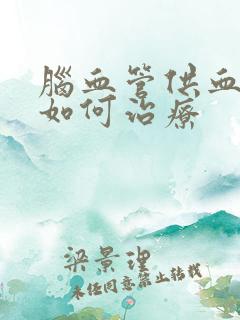 腦血管供血
如何治療
梁景理
未经同意禁止转载